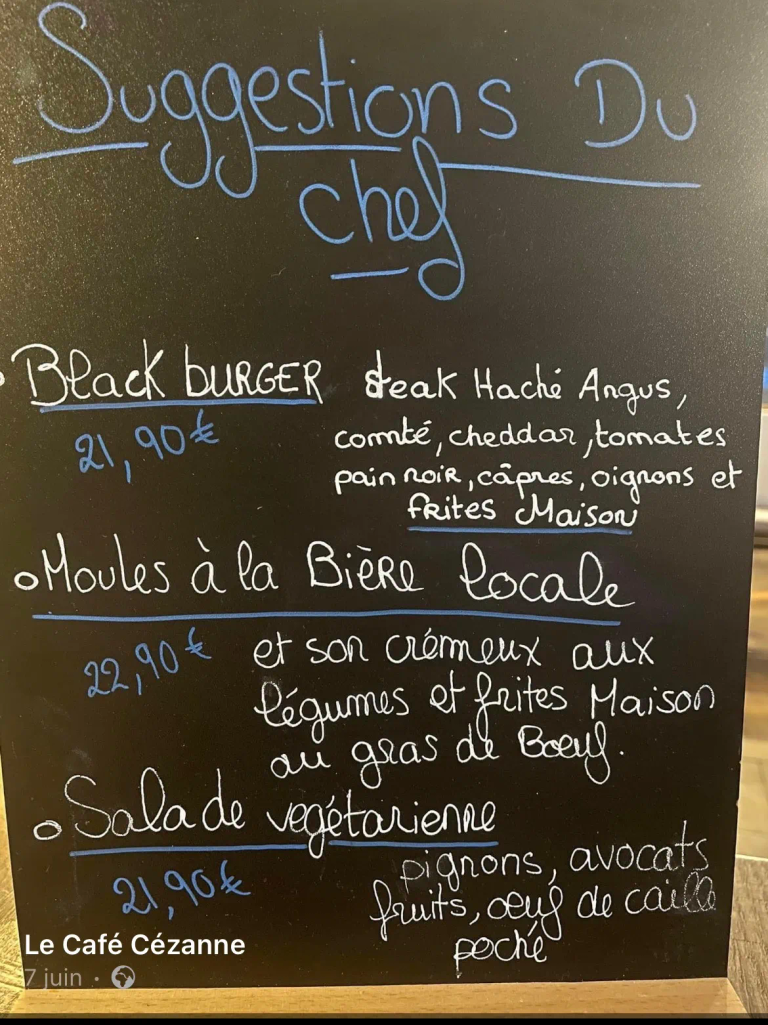 Suggestions Du
chef
Black BURGER steak Haché Angus,
21,90€ comté, cheddar, tomates
pain noir, câpres, oignons et
frites Maison
Moules à la Bière locale
22,90€ et son crémeux aux
légumes et frites Maison
au gras de Bœuf.
Salade vegétarienne
21,90€ pignons, avocats
fruits, œuf de caille
poché
Le Café Cézanne
7 juin